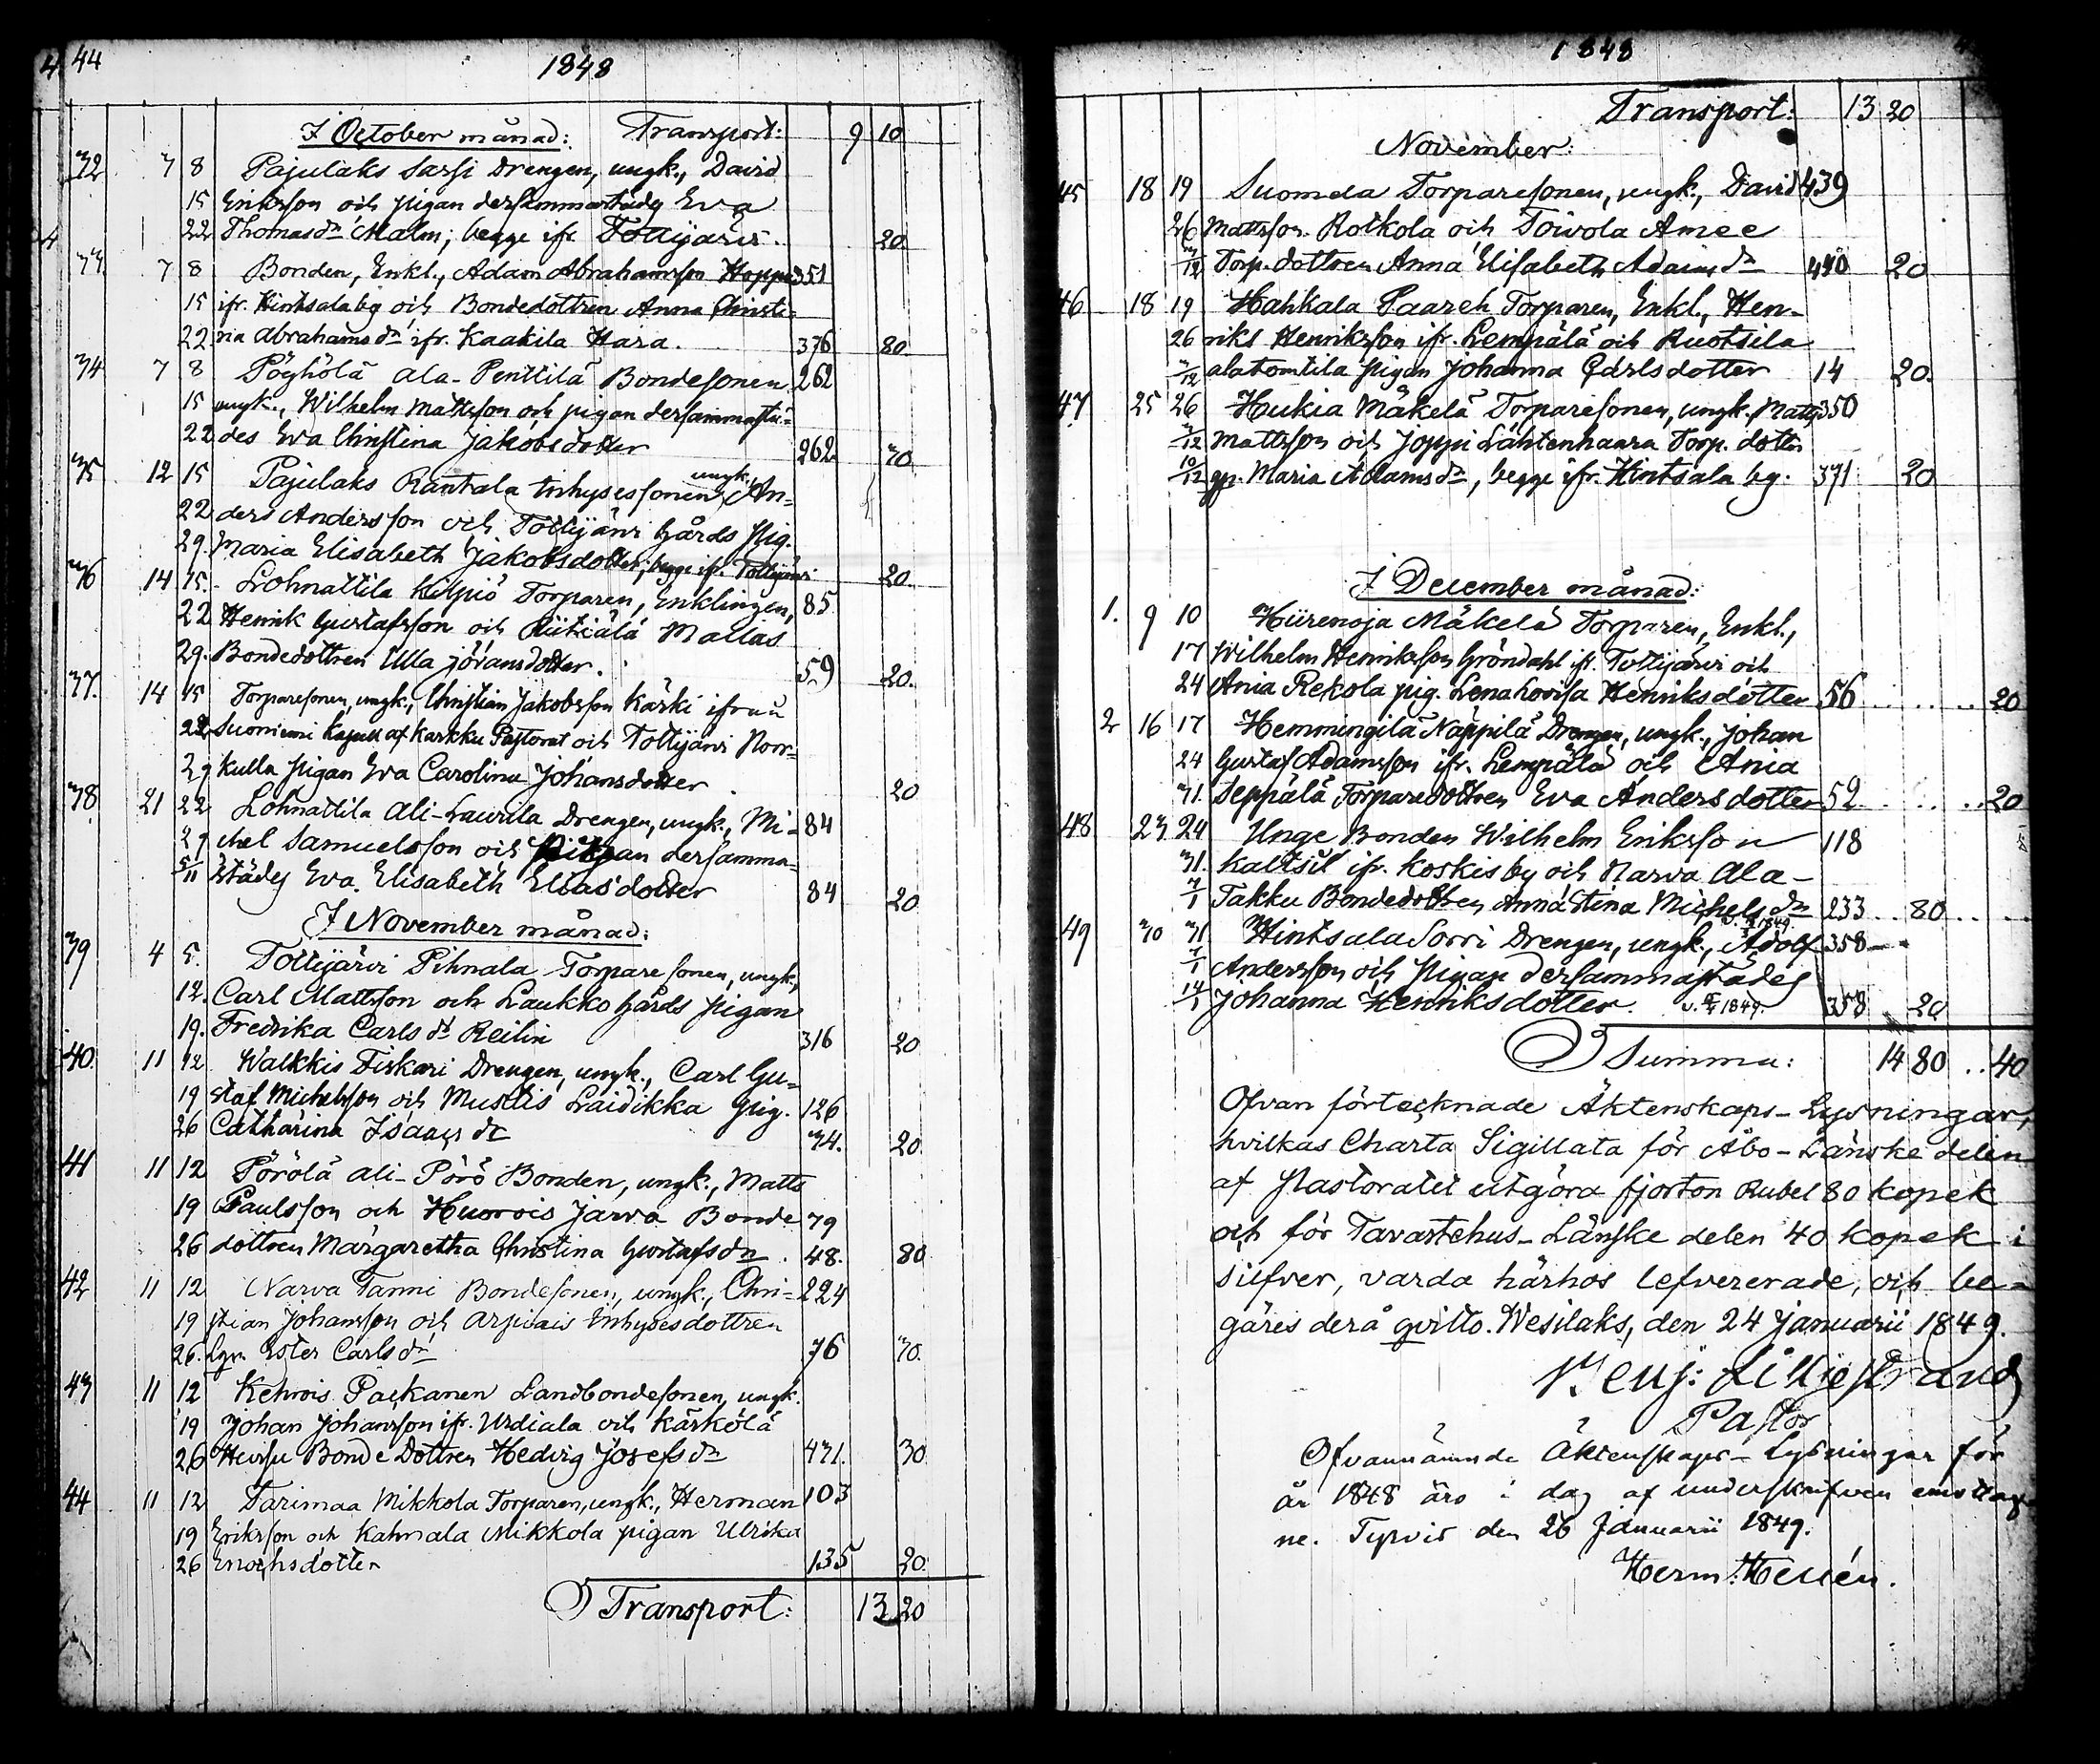 44
1848
I October månad: Transport: 9 10
32 7 8 Pajulaks Sassi Drengen, ungk., David
15 Eriksson och pigan dersammastädes Eva
22 Thomasdr Malm; begge ifr. Tottijärvi. 20
33 7 8 Bonden, Enkl., Adam Abrahamsson Hoppu 351
15 ifr. Hintsala by och Bondedottren Anna Christi-
22 na Abrahamsdr ifr. Kaakila Hara. 376 80
34 7 8 Pöyhölä Ala-Penttilä Bondesonen 262
15 ungk., Wilhelm Mattsson och pigan dersammastä-
22 des Eva Christina Jakobsdotter 262 30
35 12 15 Pajulaks Rantala Inhysessonen, ungk., An-
22 ders Andersson och Tottijärvi Gårds Pig.
29. Maria Elisabeth Jakobsdotter, begge ifr. Tottijärvi 20
36 14 15. Lohnattila Kilpiö Torparen, Enklingen, 85
22 Henrik Gustafsson och Riitiälä Mallas
29. Bondedottren Ulla Jöransdotter. 59 20.
37. 14 15 Torparesonen, ungk., Christian Jakobsson Kärki ifrån
22 Suoniemi Kapell af Karkku Pastorat och Tottijärvi Norr-
29 kulla pigan Eva Carolina Johansdotter 20
38. 21 22 Lohnattila Ali-Laurila Drengen, ungk., Mi- 84
29 chel Samuelsson och Pigan dersamma-
5/11 städes Eva Elisabeth Eliasdotter 84 20
I November månad:
39 4 5. Tottijärvi Pihnala Torparesonen, ungk.,
12. Carl Mattsson och Laukko Gårds pigan
19. Fredrika Carlsdr Reilin 316 20
40. 11 12. Walkkis Fiskari Drengen, ungk., Carl Gu-
19 staf Michelsson och Mustis Laidikka pig. 126
26 Catharina Isaacsdr 34. 20.
41 11 12 Pörölä Ali-Pörö Bonden, ungk., Matts
19 Paulsson och Huorois Jarva Bonde 79
26 dottren Margaretha Christina Gustafsdr. 48. 80
42 11 12 Narva Tanni Bondesonen, ungk., Chri- 224
19 stian Johansson och Arpiais Inhysesdottren
26. Ester Carlsdr 76 30.
43 11 12 Kehrois Paskanen Landbondesonen, ungk.
19 Johan Johansson ifr. Urdiala och Kärkölä
26 Heissu Bonde Dottren Hedvig Josefsdr 431. 30
44 11 12 Tarimaa Mikkola Torparen, ungk., Herman 103
19 Eriksson och Kahnala Mikkola pigan Ulrika
26 Enochsdotter 135 20.
Transport: 13 20
1848
Transport: 13 20
November:
45 18 19 Suomela Torparesonen, ungk., David 439
26 Mattsson Rotkola och Toivola Amee
3/12 Torp. dottren Anna Elisabeth Adamsdr 440 20
46 18 19 Hahkala Paareh Torparen, Enkl., Hen-
26 riks Henriksson ifr. Lempälä och Ruotsila
3/12 alatomtila pigan Johanna Carlsdotter 14 20.
47. 25 26 Hukia Mäkelä Torparesonen, ungk., Matts 350
3/12 Mattsson och Joppi Lähtenhaara Torp. dottr
10/12 gp. Maria Adamsdr, begge ifr. Hintsala by. 371 20
I December månad:
1. 9 10 Hiirenoja Mäkelä Torparen, Enkl.,
17 Wilhelm Henriksson Gröndahl ifr. Tottijärvi och
24 Ania Rekola pig. Lena Lovisa Henriksdotter 56 20
2 16 17 Hemmingilä Näppilä Drengen, ungk., Johan
24 Gustaf Adamsson ifr. Lempälä och Ania
31. Seppälä Torparedottren Eva Andersdotter 52 20
48 23 24 Unge Bonden Wilhelm Eriksson 118
31. Kaltsil ifr. Koskis by och Narva Ala-
7/1 Takku Bondedottren Anna Stina Michelsdr 233 80
49 30 31. Hintsala Sorri Drengen, ungk., Adolf 358
7/1 Andersson och pigan dersammastädes
14/1 Johanna Henriksdotter. 1849. 358 20
Summa: 14 80 40
Ofvan förtecknade Äktenskaps-Lysningar,
hvilkas Charta Sigillata för Åbo-Länske delen
af Pastoratet utgöra fjorton Rubel 80 kopek
och för Tavastehus-Länske delen 40 kopek i
silfver, varda härhos lefvererade, och be-
gäres derå qvitto. Wesilaks, den 24 Januarii 1849.
Benj: Lilljestrand
Pastor
Ofvannämnde Äktenskaps-Lysningar för
år 1848 äro i dag af underskrifven emottag-
ne. Tyrvis den 26 Januarii 1849.
Herm: Hellén.